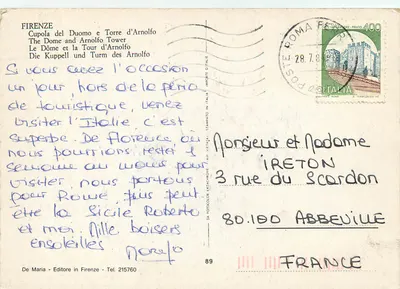 FIRENZE
Cupola del Duomo e Torre d'Arnolfo
The Dome and Arnolfo Tower
Le Dôme et la Tour d'Arnolfo
Die Kuppell und Turm des Arnolfo
Si vous avez l'occasion
un jour, hors de la période
de touristique, venez
visiter l'Italie c'est
superbe. De Florence où
nous pourrions rester 1
semaine au moins pour
visiter, nous partons
pour Rome puis peut
être la Sicile Roberto
et moi. Mille baisers
ensoleillés
POSTE ROMA
28.7.8
400
ITALIA
Monsieur et Madame
IRETON
3 rue du Scardon
80.100 ABBEVILLE
FRANCE
De Maria - Editore in Firenze - Tel. 215760
89